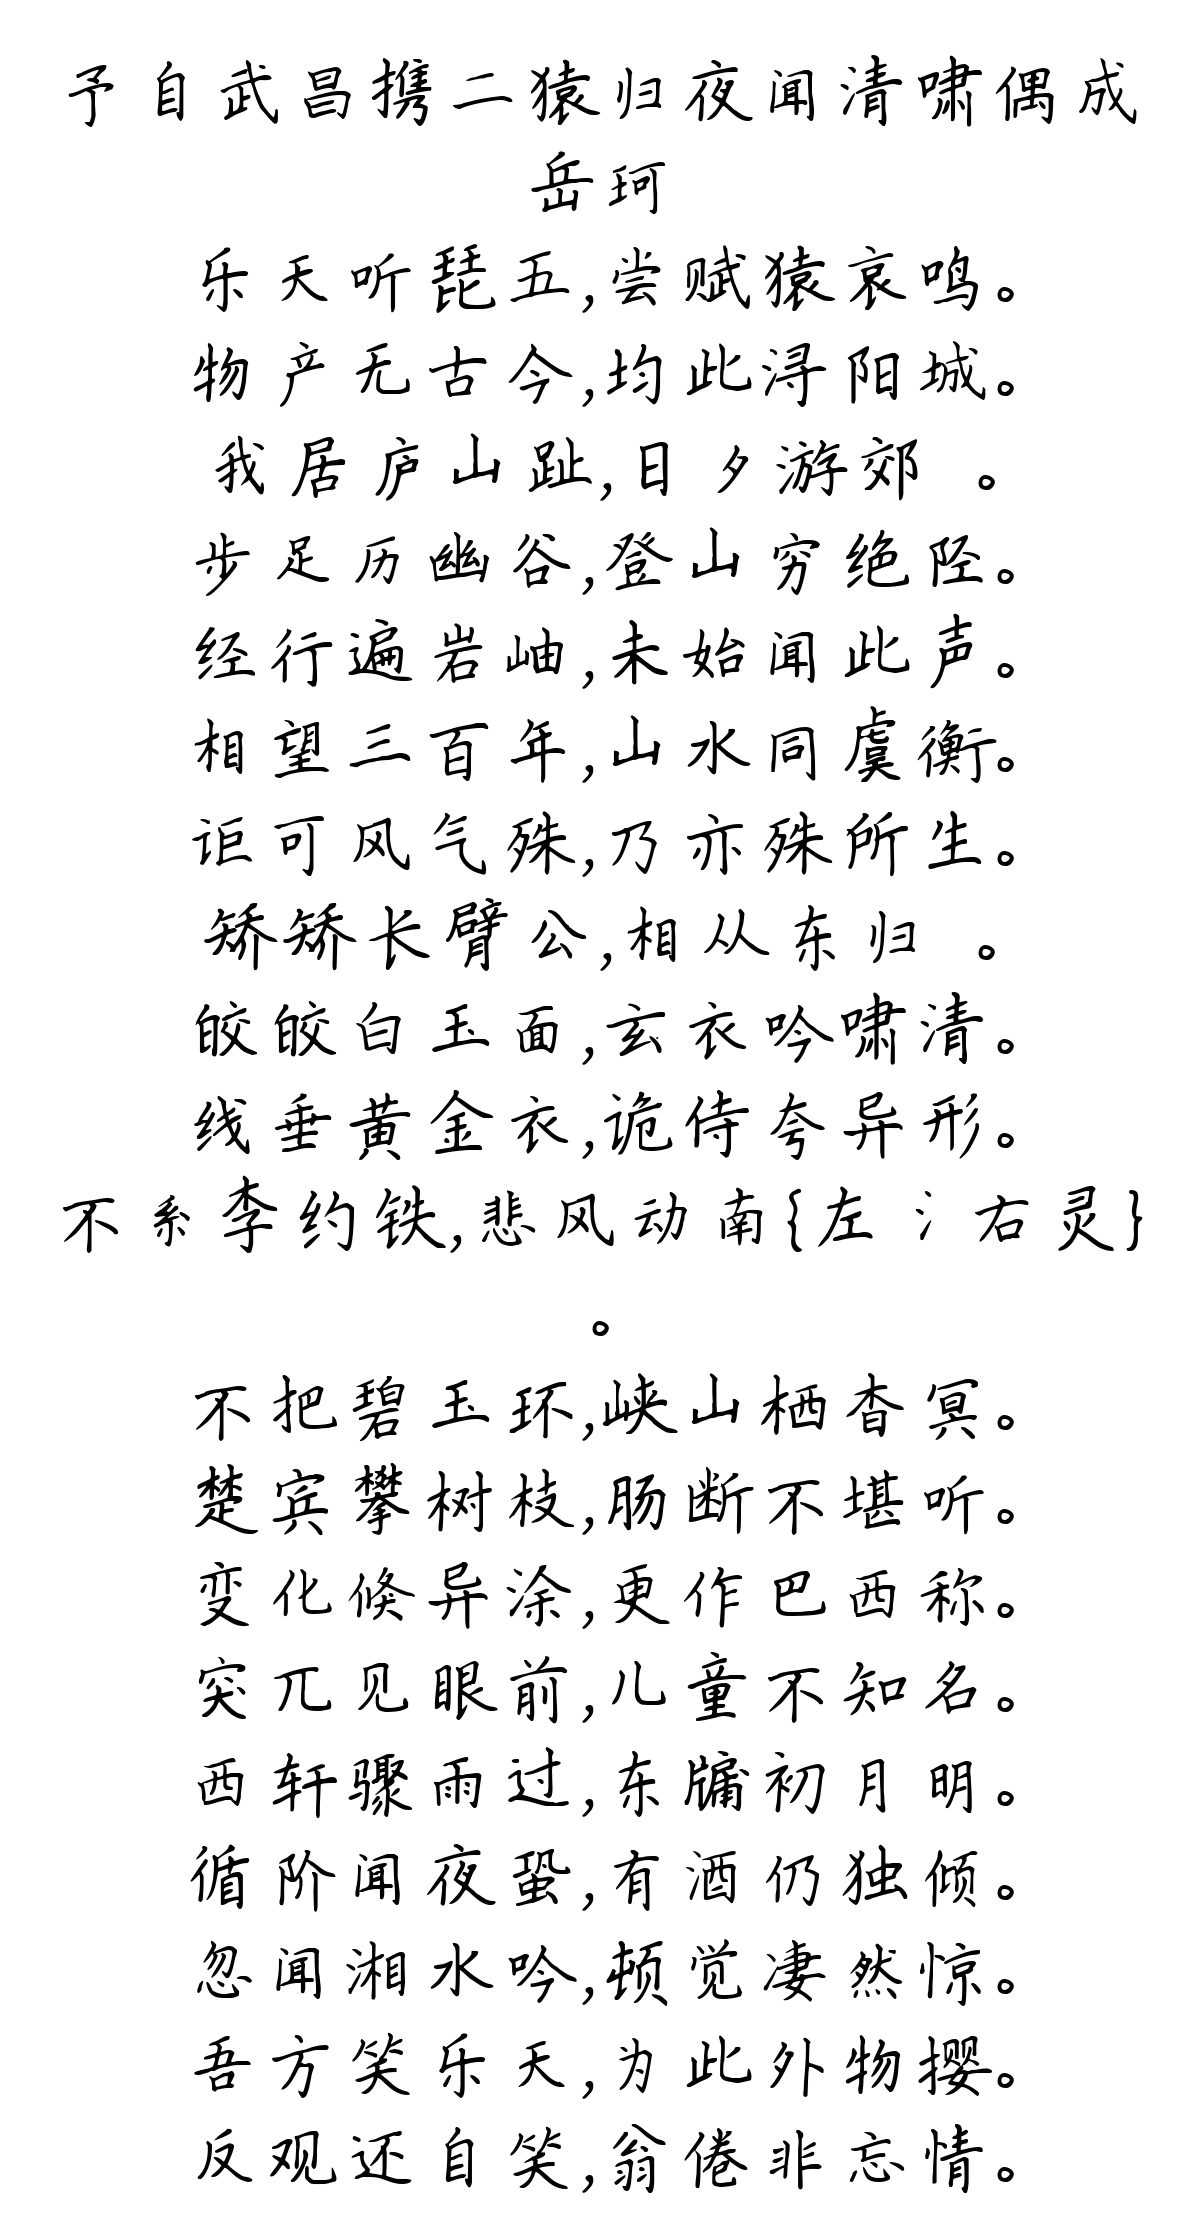 予自武昌携二猿归夜闻清啸偶成
岳珂
乐天听琵五,尝赋猿哀鸣。
物产无古今,均此浔阳城。
我居庐山趾,日夕游郊 。
步足历幽谷,登山穷绝陉。
经行遍岩岫,未始闻此声。
相望三百年,山水同虞衡。
讵可风气殊,乃亦殊所生。
矫矫长臂公,相从东归 。
皎皎白玉面,玄衣吟啸清。
线垂黄金衣,诡侍夸异形。
不系李约铁,悲风动南{左氵右灵}
。
不把碧玉环,峡山栖杳冥。
楚宾攀树枝,肠断不堪听。
变化倏异涂,更作巴西称。
突兀见眼前,儿童不知名。
西轩骤雨过,东牖初月明。
循阶闻夜蛩,有酒仍独倾。
忽闻湘水吟,顿觉凄然惊。
吾方笑乐天,为此外物撄。
反观还自笑,翁倦非忘情。